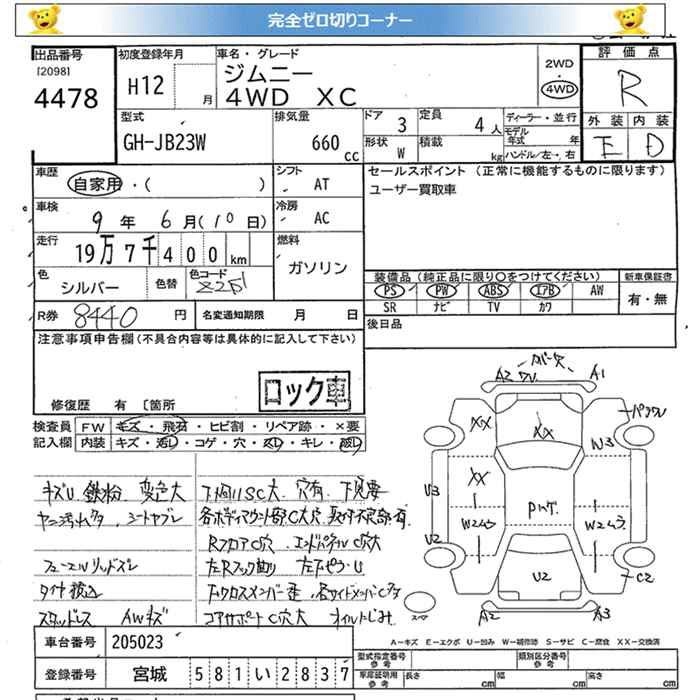 完全ゼロ切りコーナー
出品番号
[2098]
4478
初度登録年月
H12 月
車名・グレード
ジムニー
4WD XC
2WD
・
4WD
評価点
R
外装 内装
E D
型式
GH-JB23W
排気量
660 cc
ドア
3
定員
4 人
形状
W
積載
kg
ディーラー・並行
モデル年式 年
ハンドル/左・右
車歴
自家用・( )
シフト
AT
セールスポイント (正常に機能するものに限ります)
ユーザー買取車
車検
9 年 6 月(10 日)
冷房
AC
走行
19万7千400 km
燃料
ガソリン
色
シルバー
色替
色コード
Z2S
装備品(純正品に限り○をつけてください)
新車保証書
PS PW ABS エアB AW
SR ナビ TV カワ
有・無
R券 8440 円
名変通知期限 月 日
後日品
注意事項申告欄(不具合内容等は具体的に記入して下さい)
ロック車
修復歴 有 〔箇所
検査員記入欄
FW キズ・飛石・ヒビ割・リペア跡・×要
内装 キズ・汚レ・コゲ・穴・スレ・キレ・破レ
キズU 鉄粉 変色大
下廻りSC大 穴有 下見要
各ボディマウント部C大穴
RフロアC穴 エンドパネルC穴大
タイヤ積込
スタッドレス AWキズ
コアサポートC穴大 オイルにじみ
A2 A1
XX XX W3
U3 XX Pハゲ
W2 W2
U2 U2 C2
A2 A3
スペア
A=キズ E=エクボ U=凹み W=補修跡 S=サビ C=腐食 XX=交換済
車台番号 205023
登録番号 宮城 581い2837
型式指定番号
参考
類別区分番号
参考
車庫証明用
参考
長さ cm 幅 cm 高さ cm